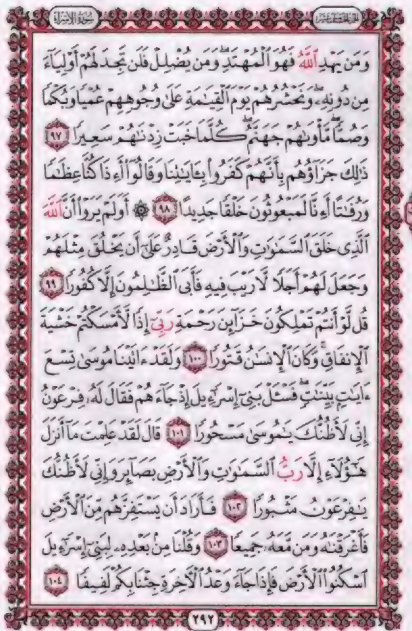 سُورَةُ الإِسْرَاءِ
وَمَن يَهْدِ ٱللَّهُ فَهُوَ ٱلْمُهْتَدِ ۖ وَمَن يُضْلِلْ فَلَن تَجِدَ لَهُمْ أَوْلِيَآءَ
مِن دُونِهِۦ ۖ وَنَحْشُرُهُمْ يَوْمَ ٱلْقِيَٰمَةِ عَلَىٰ وُجُوهِهِمْ عُمْيًا وَبُكْمًا
وَصُمًّا ۖ مَّأْوَىٰهُمْ جَهَنَّمُ ۖ كُلَّمَا خَبَتْ زِدْنَٰهُمْ سَعِيرًا ٩٧
ذَٰلِكَ جَزَآؤُهُم بِأَنَّهُمْ كَفَرُوا۟ بِـَٔايَٰتِنَا وَقَالُوٓا۟ أَءِذَا كُنَّا عِظَٰمًا
وَرُفَٰتًا أَءِنَّا لَمَبْعُوثُونَ خَلْقًا جَدِيدًا ٩٨ ۞ أَوَلَمْ يَرَوْا۟ أَنَّ ٱللَّهَ
ٱلَّذِى خَلَقَ ٱلسَّمَٰوَٰتِ وَٱلْأَرْضَ قَادِرٌ عَلَىٰٓ أَن يَخْلُقَ مِثْلَهُمْ
وَجَعَلَ لَهُمْ أَجَلًا لَّا رَيْبَ فِيهِ فَأَبَى ٱلظَّٰلِمُونَ إِلَّا كُفُورًا ٩٩
قُل لَّوْ أَنتُمْ تَمْلِكُونَ خَزَآئِنَ رَحْمَةِ رَبِّىٓ إِذًا لَّأَمْسَكْتُمْ خَشْيَةَ
ٱلْإِنفَاقِ ۚ وَكَانَ ٱلْإِنسَٰنُ قَتُورًا ١٠٠ وَلَقَدْ ءَاتَيْنَا مُوسَىٰ تِسْعَ
ءَايَٰتٍۭ بَيِّنَٰتٍ ۖ فَسْـَٔلْ بَنِىٓ إِسْرَٰٓءِيلَ إِذْ جَآءَهُمْ فَقَالَ لَهُۥ فِرْعَوْنُ
إِنِّى لَأَظُنُّكَ يَٰمُوسَىٰ مَسْحُورًا ١٠١ قَالَ لَقَدْ عَلِمْتَ مَآ أَنزَلَ
هَٰٓؤُلَآءِ إِلَّا رَبُّ ٱلسَّمَٰوَٰتِ وَٱلْأَرْضِ بَصَآئِرَ وَإِنِّى لَأَظُنُّكَ
يَٰفِرْعَوْنُ مَثْبُورًا ١٠٢ فَأَرَادَ أَن يَسْتَفِزَّهُم مِّنَ ٱلْأَرْضِ
فَأَغْرَقْنَٰهُ وَمَن مَّعَهُۥ جَمِيعًا ١٠٣ وَقُلْنَا مِنۢ بَعْدِهِۦ لِبَنِىٓ إِسْرَٰٓءِيلَ
ٱسْكُنُوا۟ ٱلْأَرْضَ فَإِذَا جَآءَ وَعْدُ ٱلْءَاخِرَةِ جِئْنَا بِكُمْ لَفِيفًا ١٠٤
٢٩٢